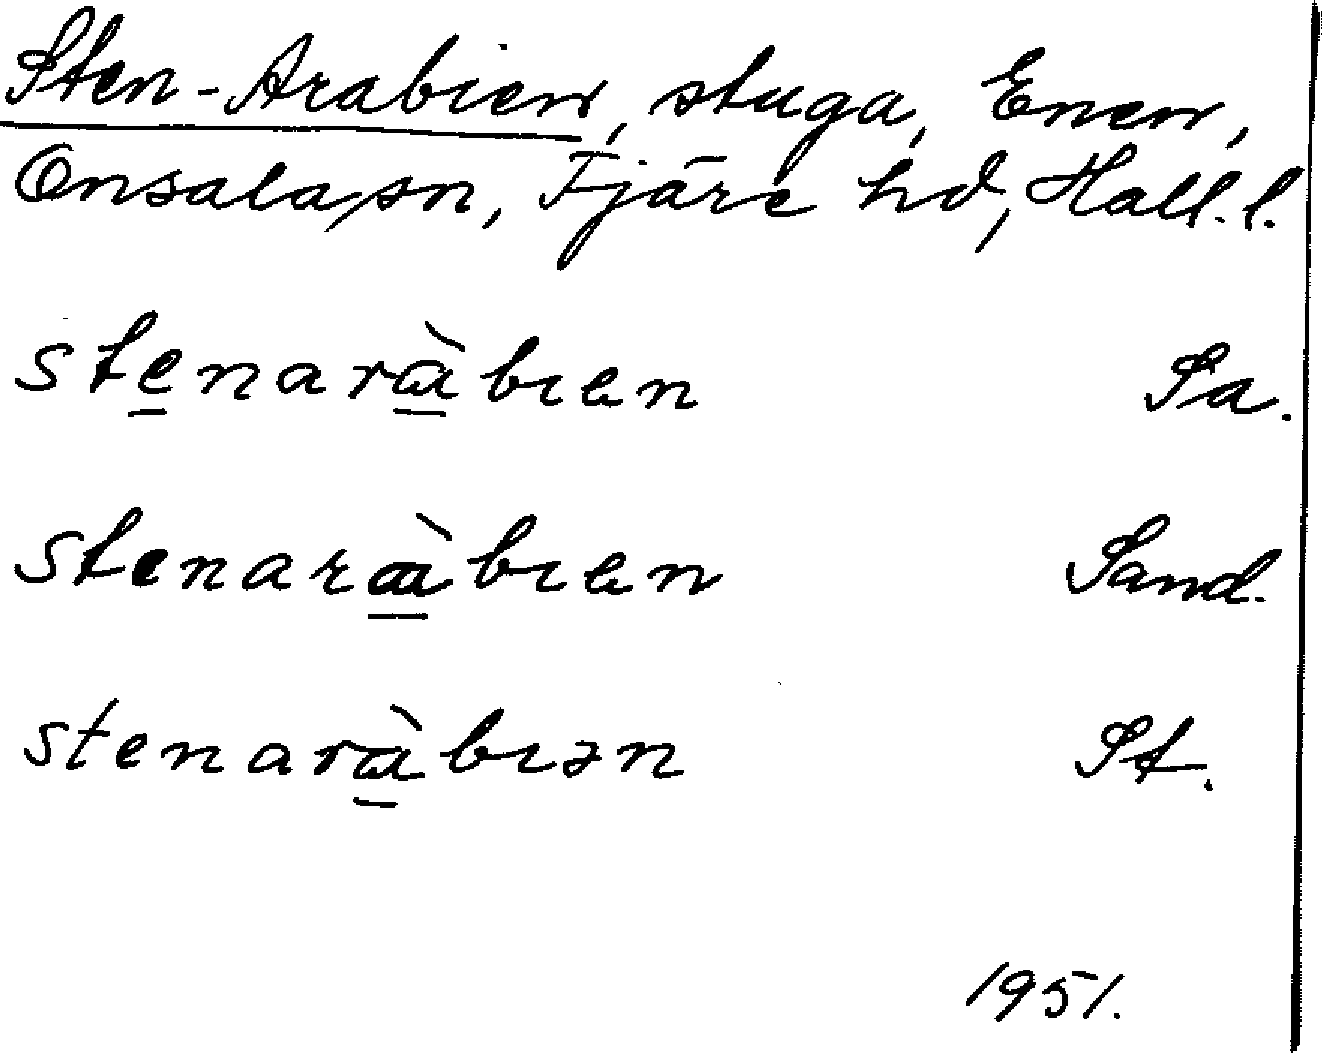 Sten-Arabien, stuga, Enen,
Onsala sn, Fjäre hd, Hall. l.
stenaràbıen Sa.
stenaràbıen Sand.
stenaràbıən St.
1951.